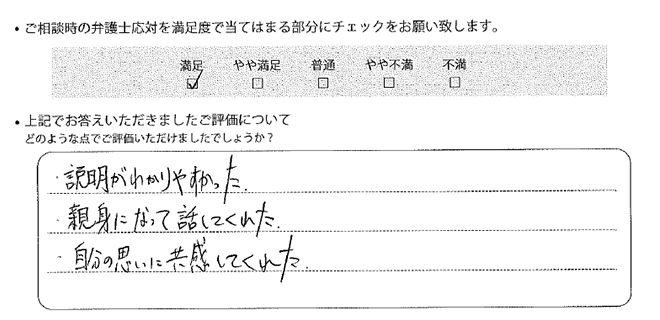 ・ご相談時の弁護士応対を満足度で当てはまる部分にチェックをお願い致します。
満足 やや満足 普通 やや不満 不満
☑ □ □ □ □
・上記でお答えいただきましたご評価について
どのような点でご評価いただけましたでしょうか？
・説明がわかりやすかった.
・親身になって話してくれた.
・自分の思いに共感してくれた.